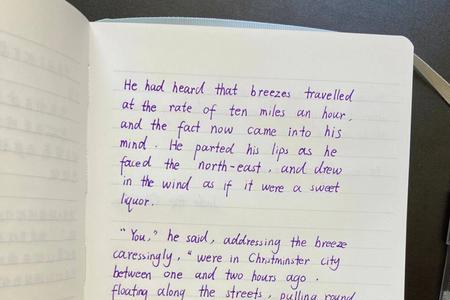 He had heard that breezes travelled
at the rate of ten miles an hour,
and the fact now came into his
mind. He parted his lips as he
faced the north-east, and drew
in the wind as if it were a sweet
liquor.
"You," he said, addressing the breeze
caressingly, "were in Christminster city
between one and two hours ago.
floating along the streets, pulling round